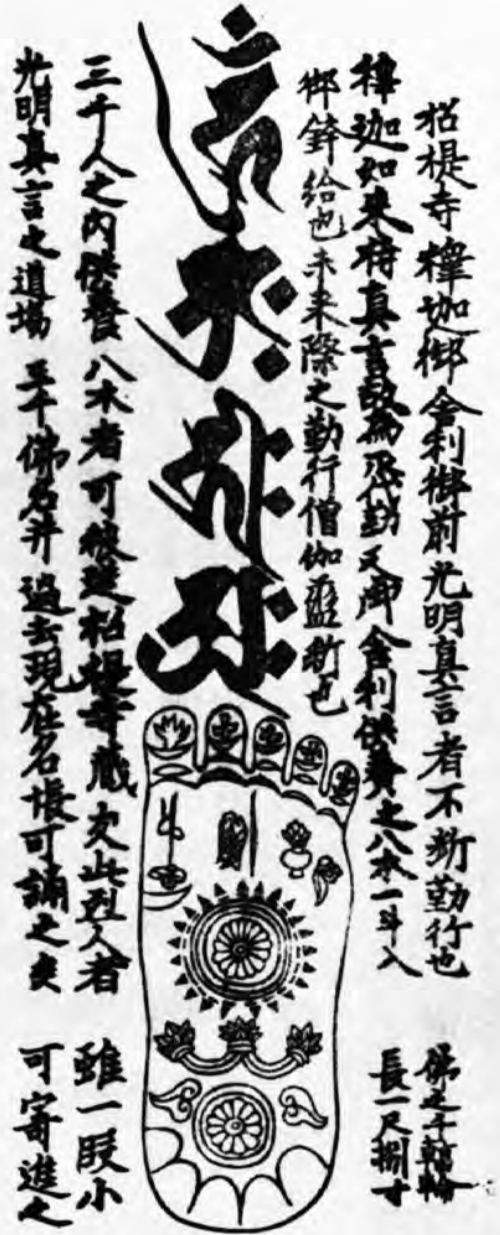 招提寺釋迦御舍利御前光明真言者不断勤行也
釋迦如来持真言故為 又御舍利供養之八木一斗入
御鉢給也未来際之勤行僧伽藍断也
佛足千輻輪
長一尺捌寸
三千人之内供養八木者可被送招提寺蔵 此烈人者
光明真言之道場 三千佛名并過去現在名帳可誦之矣
雖一段小
可寄進之